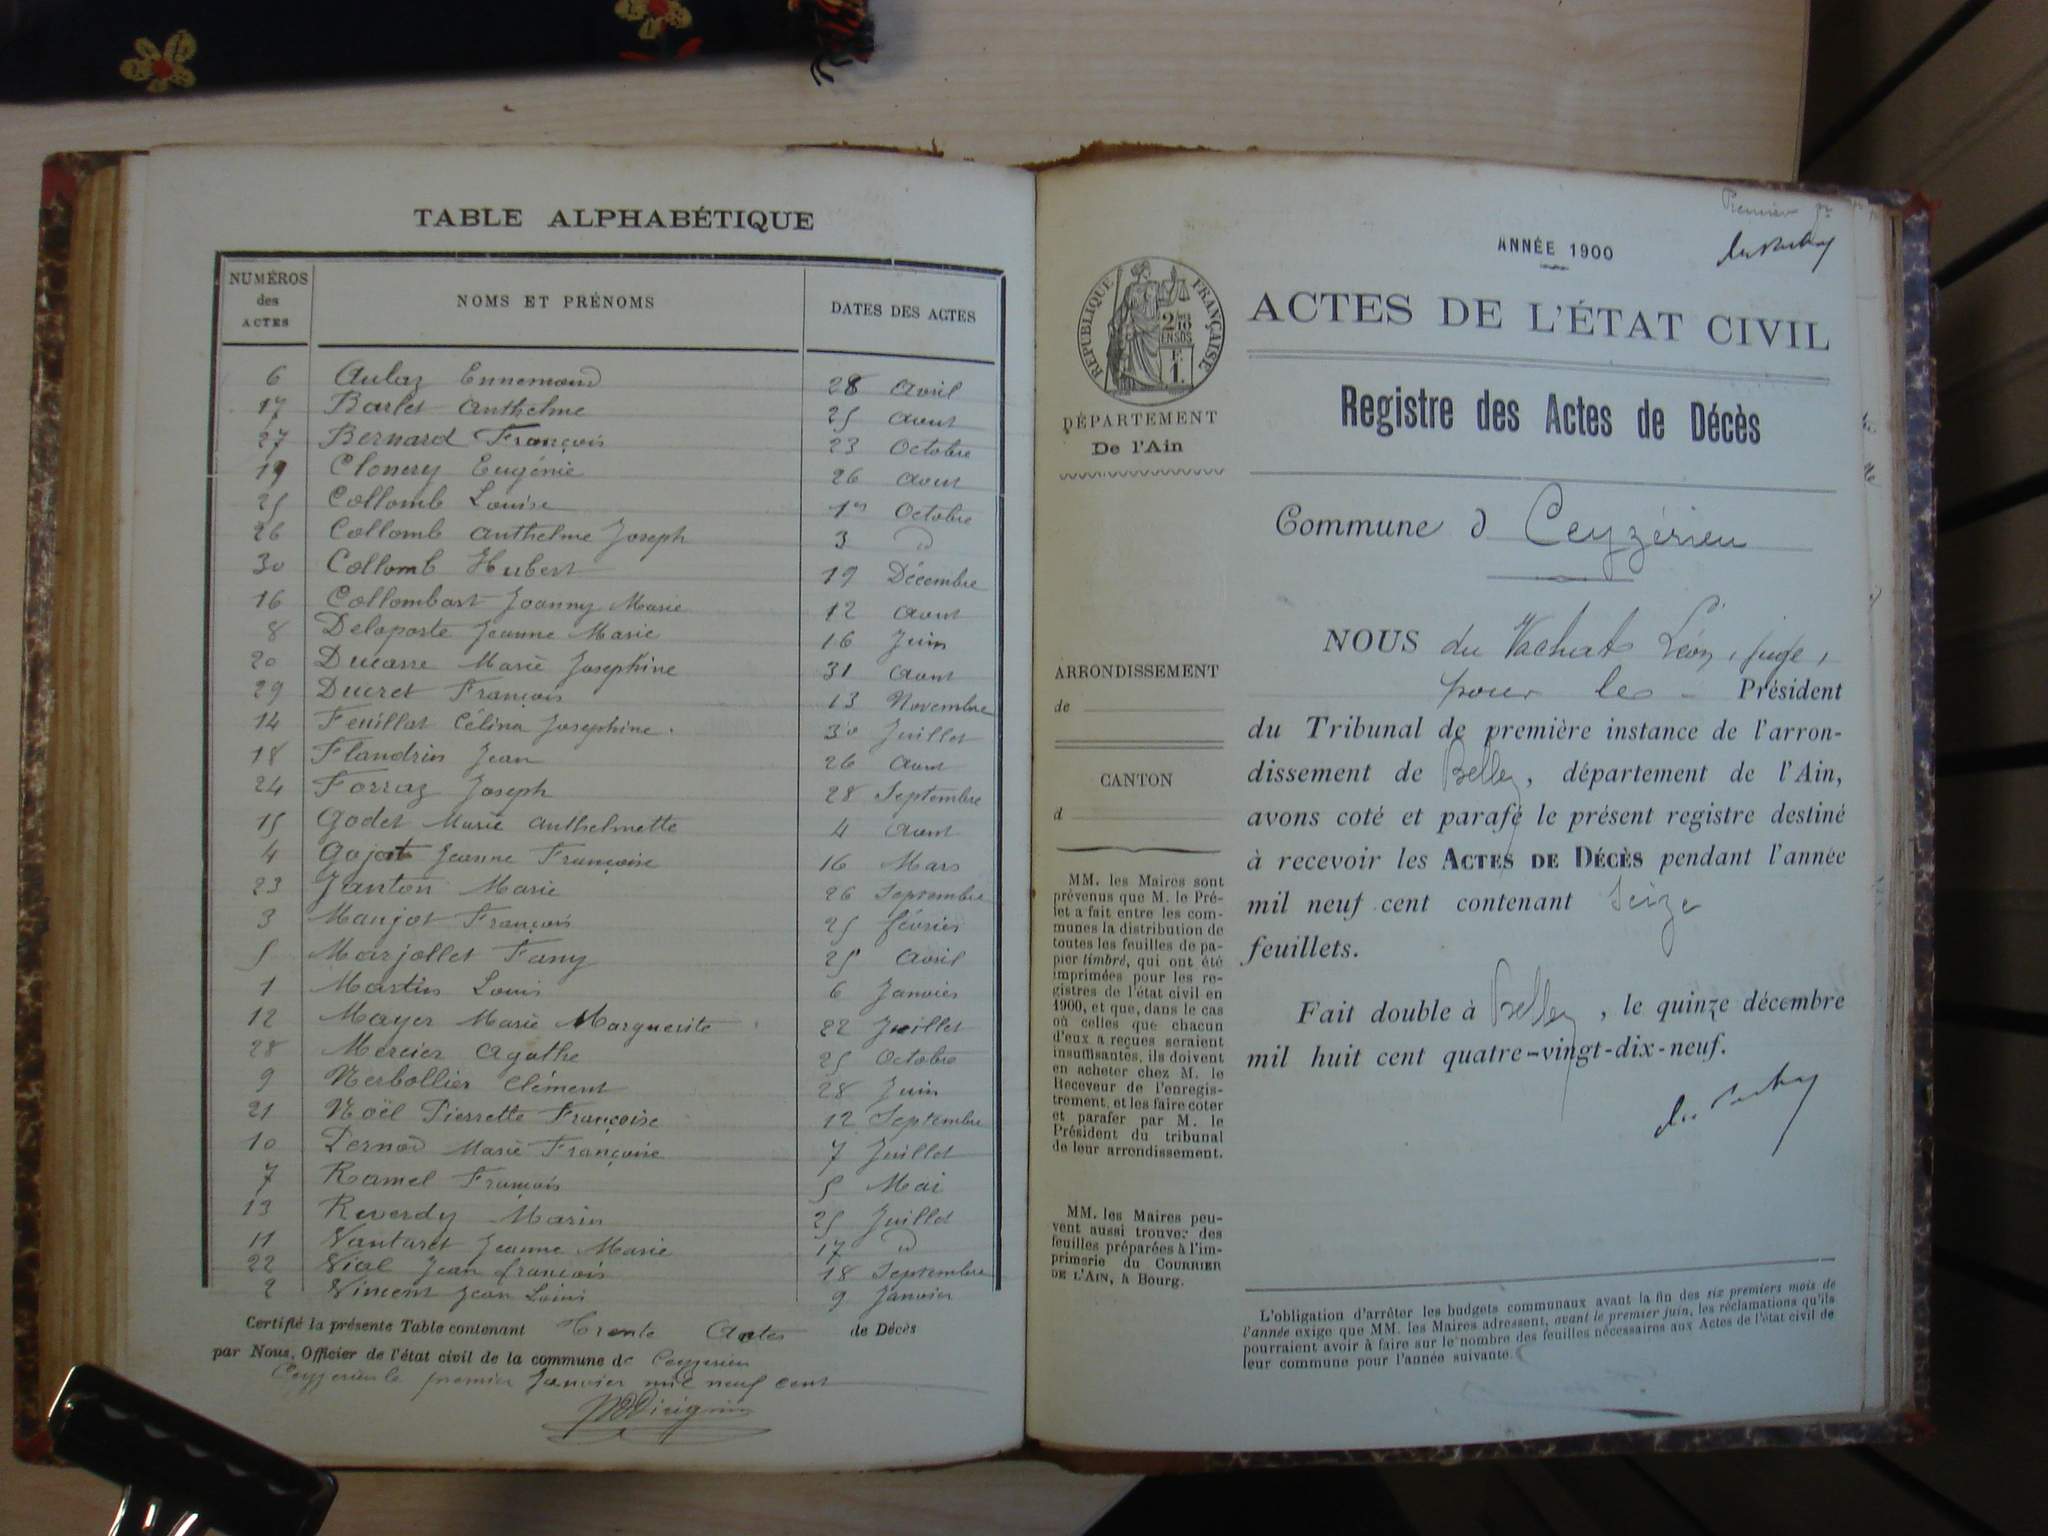 TABLE ALPHABÉTIQUE
NUMÉROS des ACTES NOMS ET PRÉNOMS DATES DES ACTES
6 Aulaz Ennemond 28 Avril
17 Barlet Anthelme 25 Aout
27 Bernard François 23 Octobre
19 Eugénie 26 Aout
25 Collomb Louise 1er Octobre
26 Collomb Anthelme Joseph 3 d
30 Collomb Hubert 19 Décembre
16 Collombart Joanny Marie 12 Aout
8 Delaporte Jeanne Marie 16 Juin
20 Ducarre Marie Josephine 31 Aout
29 Ducret François 13 Novembre
14 Feuillat Célina Josephine 30 Juillet
18 Flandrin Jean 26 Aout
24 Forraz Joseph 28 Septembre
15 Godet Marie Anthelmette 4 Aout
4 Gojat Jeanne Françoise 16 Mars
23 Janton Marie 26 Septembre
3 Maujot François 25 février
5 Marjollet Fany 25 Avril
1 Martin Louis 6 Janvier
12 Mayer Marie Marguerite 22 Juillet
28 Mercier Agathe 25 Octobre
9 Nerbollier Clément 28 Juin
21 Noël Pierrette Françoise 12 Septembre
10 Pernod Marie Françoise 7 Juillet
7 Ramel François 5 Mai
13 Reverdy Marin 25 Juillet
11 Vantaret Jeanne Marie 17 d
22 Vial Jean françois 18 Septembre
2 Vincent Jean Louis 9 Janvier
Certifié la présente Table contenant Trente Actes de Décès
par Nous, Officier de l'état civil de la commune de Ceyzerieu
Ceyzerieu le premier Janvier mil neuf cent
Premier
ANNÉE 1900
RÉPUBLIQUE FRANÇAISE
2/10 EN SUS
F. 1.
ACTES DE L'ÉTAT CIVIL
DÉPARTEMENT
De l'Ain
Registre des Actes de Décès
Commune d Ceyzérieu
ARRONDISSEMENT
de
CANTON
d
MM. les Maires sont
prévenus que M. le Pré-
fet a fait entre les com-
munes la distribution de
toutes les feuilles de pa-
pier timbré, qui ont été
imprimées pour les re-
gistres de l'état civil en
1900, et que, dans le cas
où celles que chacun
d'eux a reçues seraient
insuffisantes, ils doivent
en acheter chez M. le
Receveur de l'enregis-
trement, et les faire coter
et parafer par M. le
Président du tribunal
de leur arrondissement.
MM. les Maires peu-
vent aussi trouver des
feuilles préparées à l'im-
primerie du COURRIER
DE L'AIN, à Bourg.
NOUS du Vachat Léon, juge,
pour le Président
du Tribunal de première instance de l'arron-
dissement de Belley, département de l'Ain,
avons coté et parafé le présent registre destiné
à recevoir les ACTES DE DÉCÈS pendant l'année
mil neuf cent contenant Seize
feuillets.
Fait double à Belley, le quinze décembre
mil huit cent quatre-vingt-dix-neuf.
L'obligation d'arrêter les budgets communaux avant la fin des six premiers mois de
l'année exige que MM. les Maires adressent, avant le premier juin, les réclamations qu'ils
pourraient avoir à faire sur le nombre des feuilles nécessaires aux Actes de l'état civil de
leur commune pour l'année suivante.